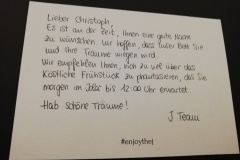 Lieber Christoph,
Es ist an der Zeit, Ihnen eine gute Nacht
zu wünschen. Wir hoffen, dass unser Bett Sie
und Ihre Träume wiegen wird.
Wir empfehlen Ihnen, nicht zu viel über das
köstliche Frühstück zu phantasieren, das Sie
morgen im bis 12:00 Uhr erwartet.
Hab schöne Träume!
J Team
#enjoythej